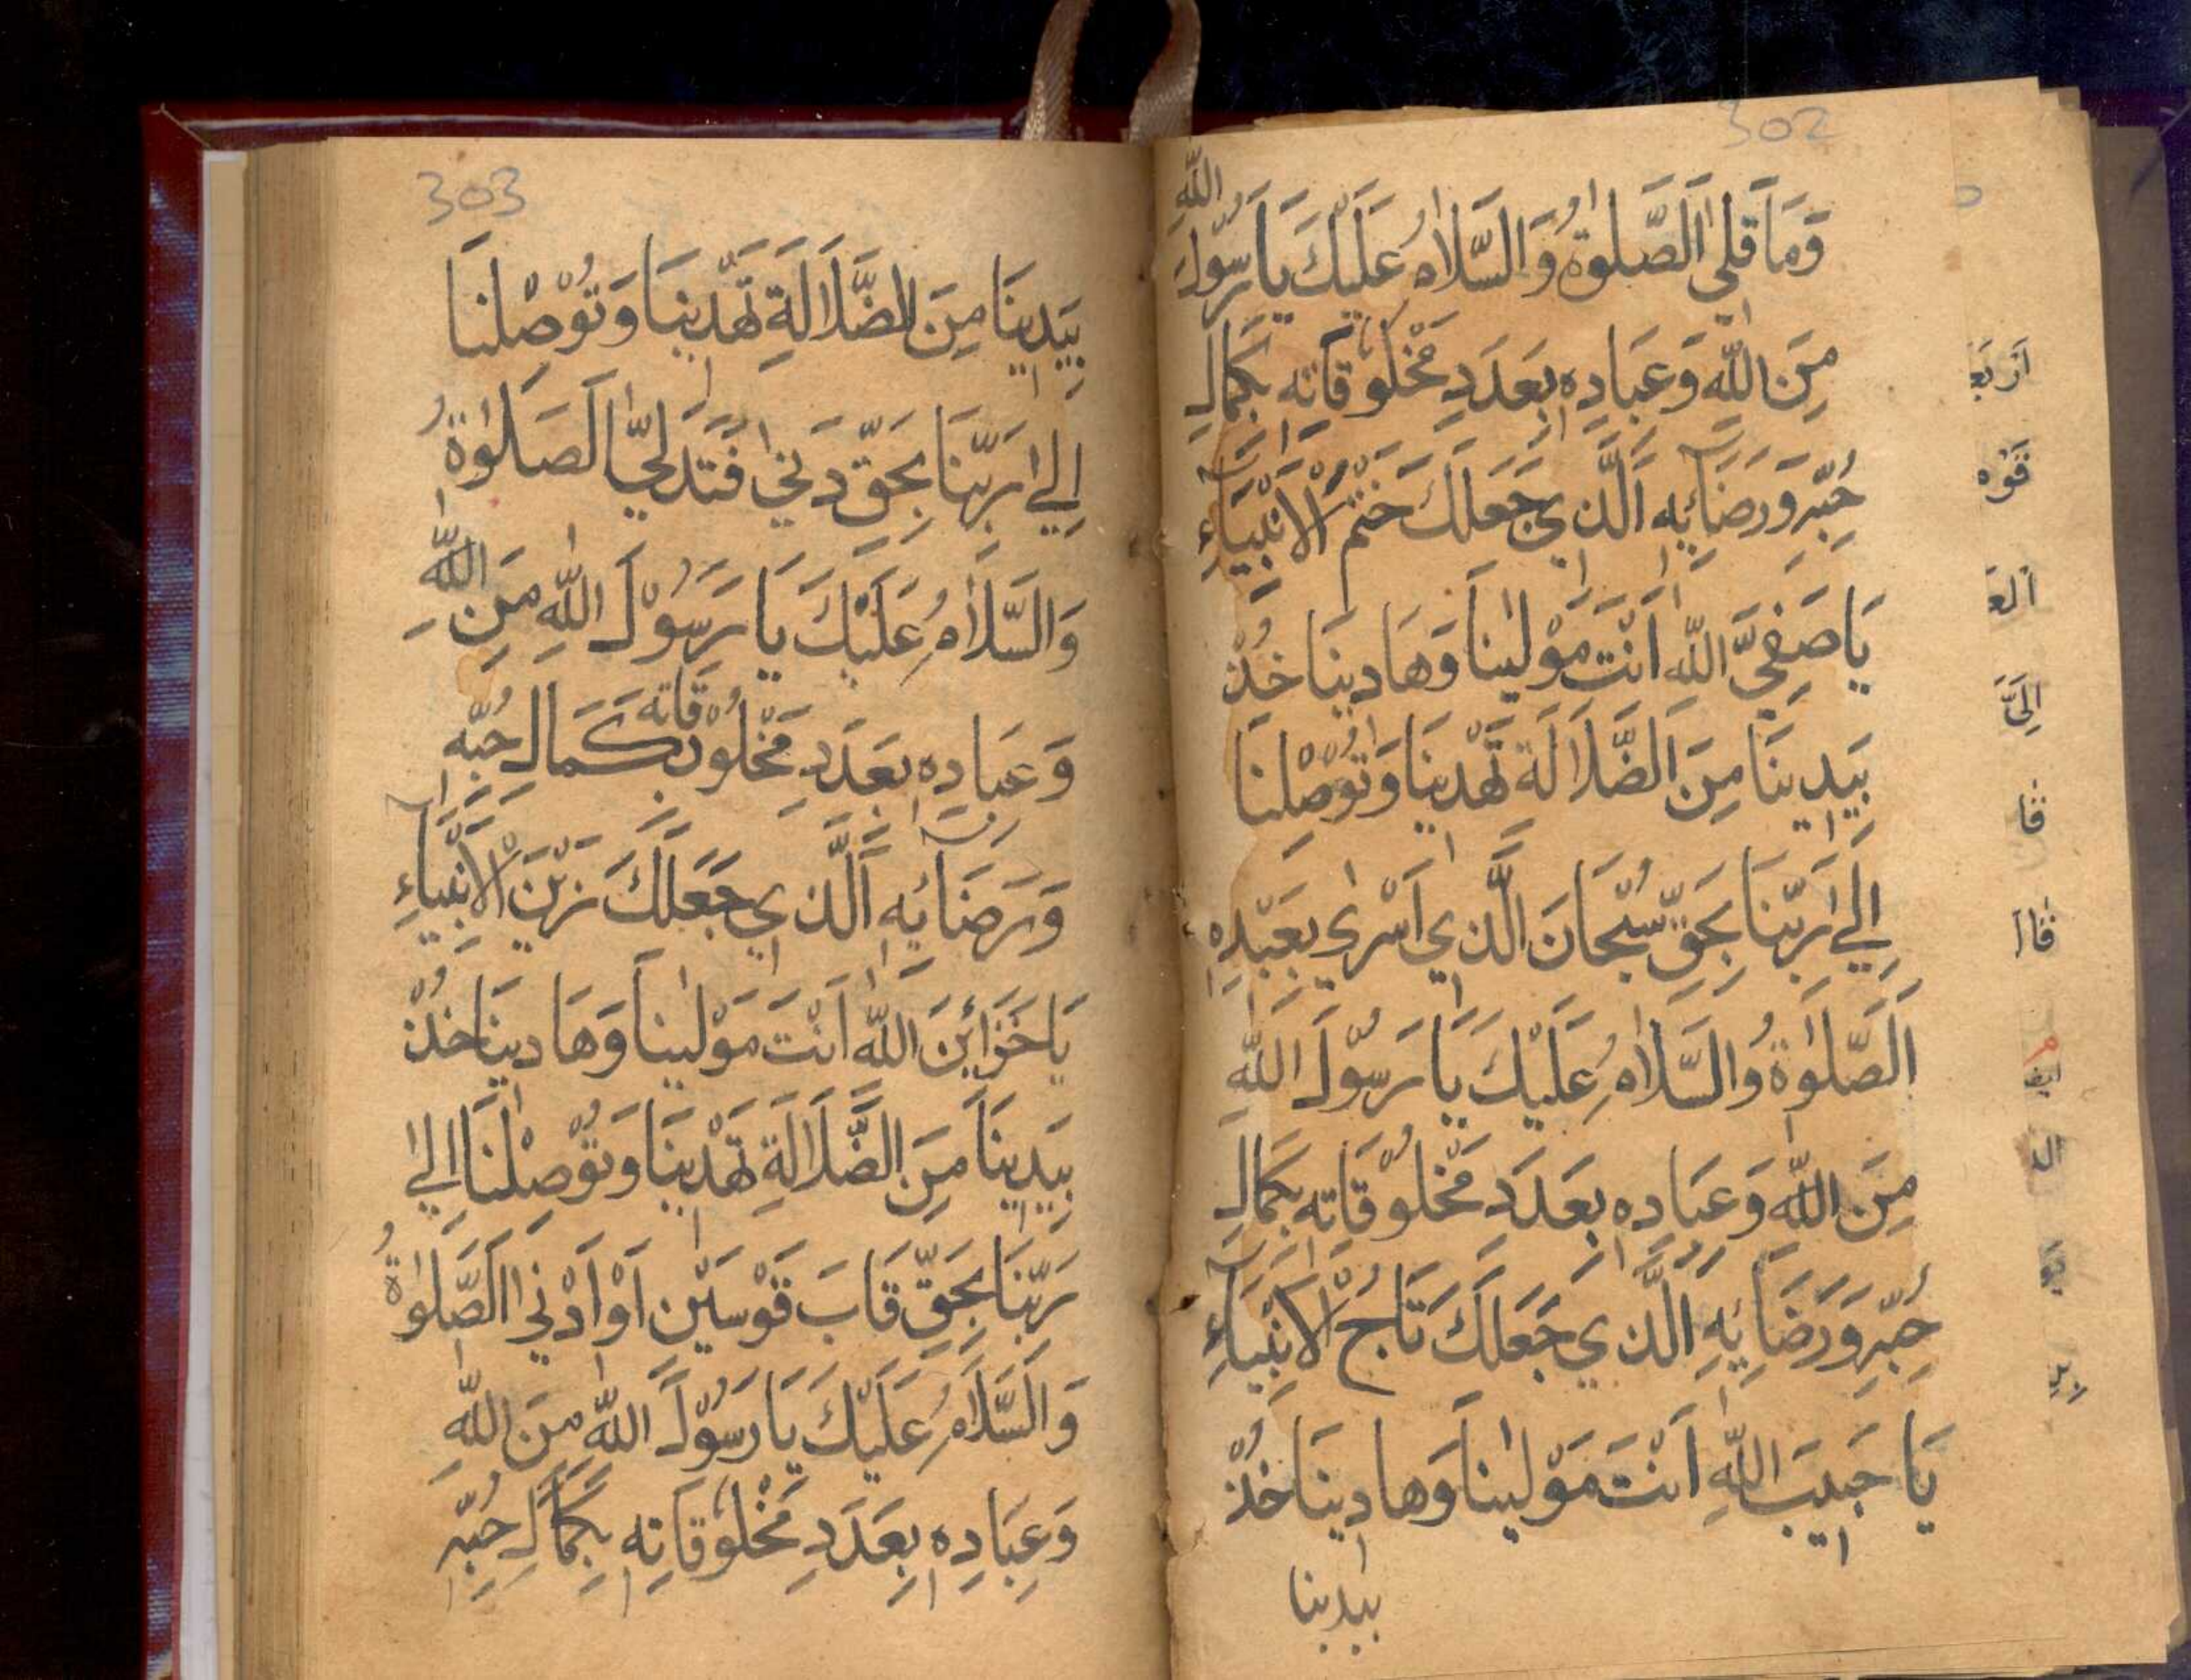 302
وَمَا قَلٰى اَلصَّلٰوةُ وَالسَّلَامُ عَلَيْكَ يَا رَسُولَ اللّٰهِ
مِنَ اللّٰهِ وَعِبَادِهٖ بِعَدَدِ مَخْلُوقَاتِهٖ بِكَمَالِ
حُبِّهٖ وَرَضَآئِهٖ اَلَّذِي جَعَلَكَ خَتْمُ الْاَنْبِيَآءِ
يَا صَفِيَّ اللّٰهِ اَنْتَ مَوْلٰينَا وَهَادِينَا خُذْ
بِيَدِينَا مِنَ الضَّلَالَةِ تَهْدِينَا وَتُوْصِلْنَا
اِلٰي رَبِّنَا بِحَقِّ سُبْحَانَ الَّذِي اَسْرٰي بِعَبْدِهٖ
اَلصَّلٰوةُ وَالسَّلَامُ عَلَيْكَ يَا رَسُوْلَ اللّٰهِ
مِنَ اللّٰهِ وَعِبَادِهٖ بِعَدَدِ مَخْلُوْقَاتِهٖ بِكَمَالِ
حُبِّهٖ وَرَضَآئِهٖ الَّذِي جَعَلَكَ تَاجُ الْاَنْبِيَآءِ
يَا حَبِيبَ اللّٰهِ اَنْتَ مَوْلٰينَا وَهَادِينَا خُذْ
بيدينا
اَرْبَعَ
قَوْه
اَلعَ
اِلَيَّ
قا
قَالَ
ال
303
بِيَدِينَا مِنَ الضَّلَالَةِ تَهْدِينَا وَتُوْصِلْنَا
اِلٰي رَبِّنَا بِحَقِّ دَنٰي فَتَدَلّٰي اَلصَّلٰوةُ
وَالسَّلَامُ عَلَيْكَ يَا رَسُوْلَ اللّٰهِ مِنَ اللّٰهِ
وَعِبَادِهٖ بِعَدَدِ مَخْلُوْقَاتِهٖ بِكَمَالِ حُبِّهٖ
وَرَضَآئِهٖ اَلَّذِي جَعَلَكَ زَيْنَ الْاَنْبِيَآءِ
يَا خَزَآئِنَ اللّٰهِ اَنْتَ مَوْلٰينَا وَهَادِينَا خُذْ
بِيَدِينَا مِنَ الضَّلَالَةِ تَهْدِينَا وَتُوْصِلْنَا اِلٰي
رَبِّنَا بِحَقِّ قَابَ قَوْسَيْنِ اَوْ اَدْنٰي اَلصَّلٰوةُ
وَالسَّلَامُ عَلَيْكَ يَا رَسُوْلَ اللّٰهِ مِنَ اللّٰهِ
وَعِبَادِهٖ بِعَدَدِ مَخْلُوقَاتِهٖ بِكَمَالِ حُبِّهٖ